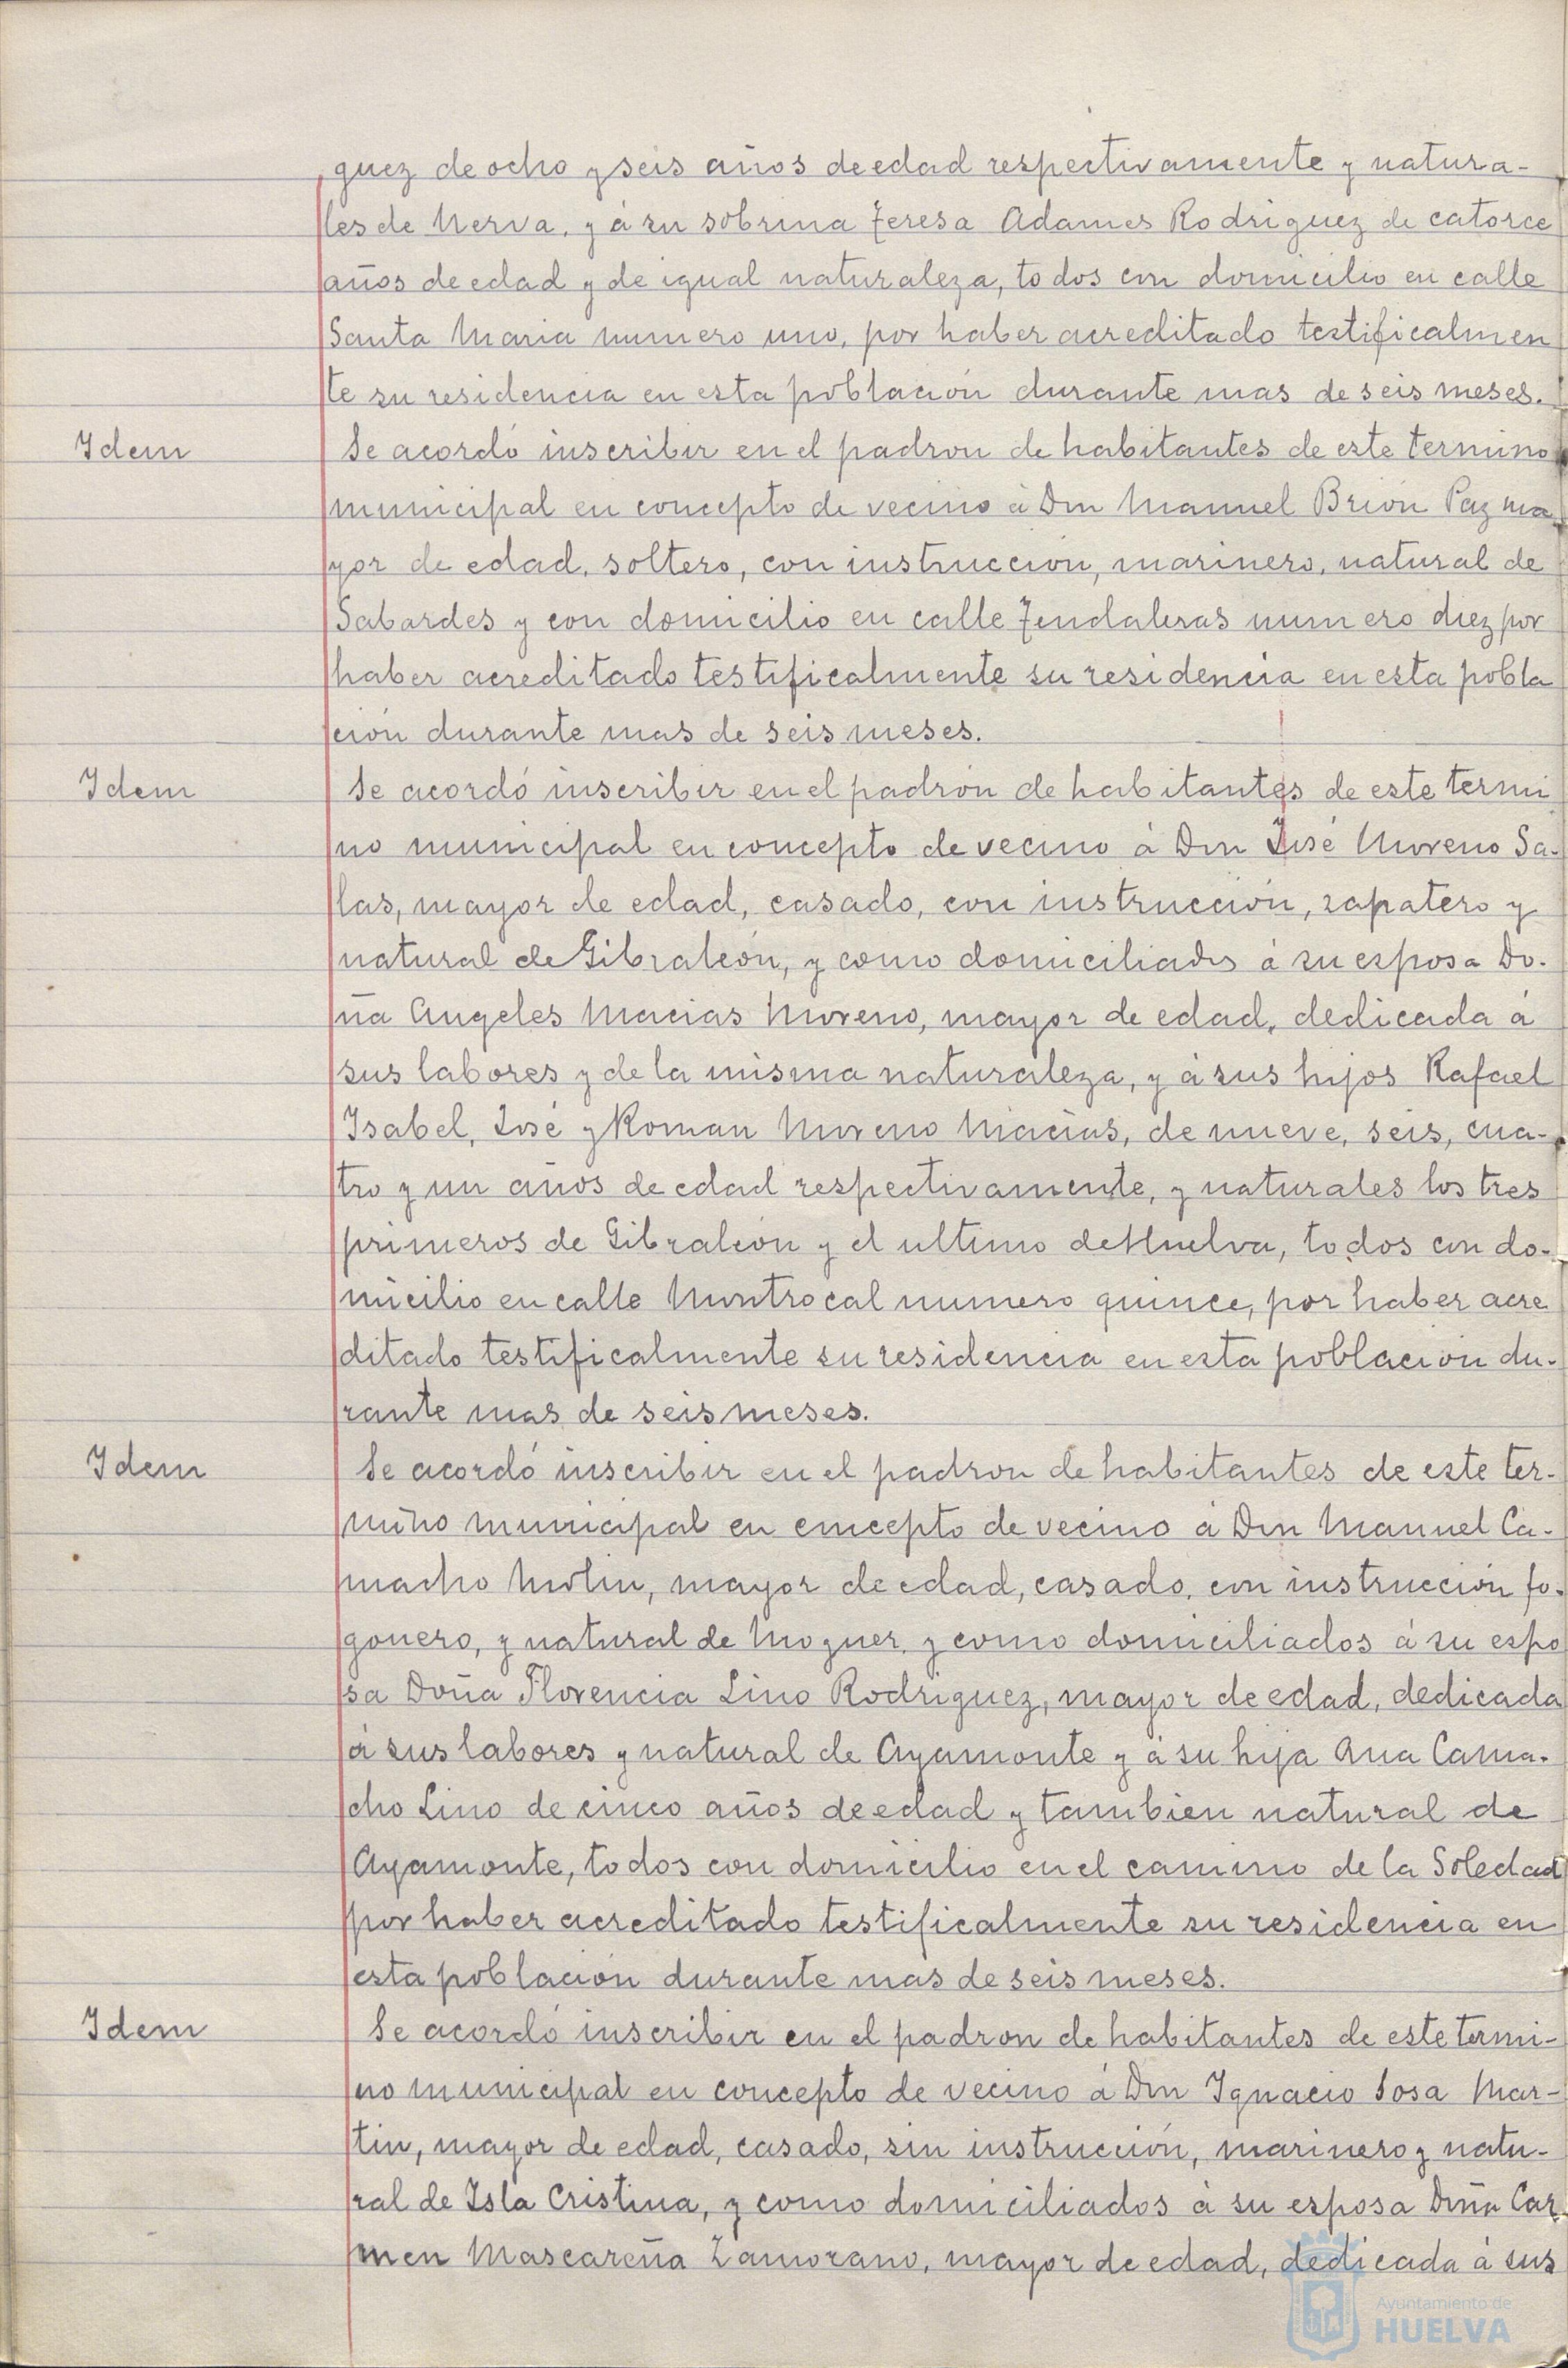 guez de ocho y seis años de edad respectivamente y natura-
les de Nerva, y á su sobrina Teresa Adames Rodriguez de catorce
años de edad y de igual naturaleza, todos con domicilio en calle
Santa Maria numero uno, por haber acreditado testificalmen
te su residencia en esta población durante mas de seis meses.
Idem
Se acordó inscribir en el padron de habitantes de este termino
municipal en concepto de vecino á Don Manuel Brión Paz ma-
yor de edad, soltero, con instrucción, marinero, natural de
Sabardes y con domicilio en calle Tendaleras numero diez por
haber acreditado testificalmente su residencia en esta pobla
ción durante mas de seis meses.
Idem
Se acordó inscribir en el padrón de habitantes de este termi
no municipal en concepto de vecino á Don José Moreno Sa-
las, mayor de edad, casado, con instrucción, zapatero y
natural de Gibraleón, y como domiciliados á su esposa Do-
ña Angeles Macias Moreno, mayor de edad, dedicada á
sus labores y de la misma naturaleza, y á sus hijos Rafael
Isabel, José y Roman Moreno Macias, de nueve, seis, cua-
tro y un años de edad respectivamente, y naturales los tres
primeros de Gibraleón y el ultimo de Huelva, todos con do-
micilio en calle Montrocal numero quince, por haber acre
ditado testificalmente su residencia en esta población du-
rante mas de seis meses.
Idem
Se acordó inscribir en el padron de habitantes de este ter-
mino municipal en concepto de vecino á Don Manuel Ca-
macho Molin, mayor de edad, casado, con instrucción fo-
gonero, y natural de Moguer, y como domiciliados á su espo
sa Doña Florencia Lino Rodriguez, mayor de edad, dedicada
á sus labores y natural de Ayamonte y á su hija Ana Cama-
cho Lino de cinco años de edad y tambien natural de
Ayamonte, todos con domicilio en el camino de la Soledad
por haber acreditado testificalmente su residencia en
esta población durante mas de seis meses.
Idem
Se acordó inscribir en el padron de habitantes de este termi-
no municipal en concepto de vecino á Don Ignacio Sosa Mar-
tin, mayor de edad, casado, sin instrucción, marinero y natu-
ral de Isla Cristina, y como domiciliados á su esposa Doña Car-
men Mascareña Zamorano, mayor de edad, dedicada á sus
Ayuntamiento de
HUELVA